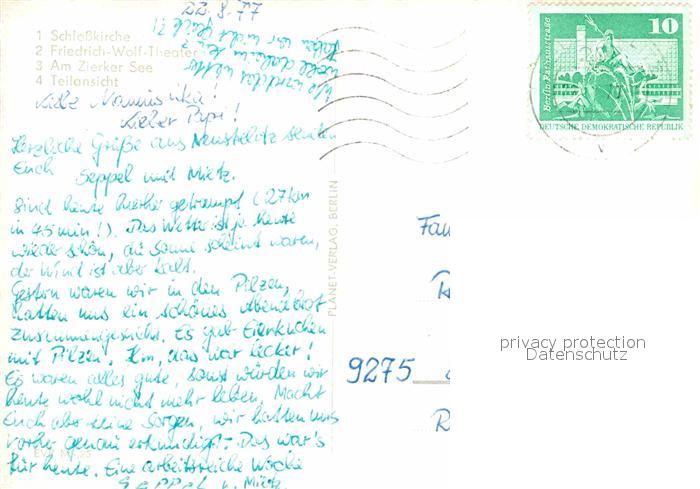 22.8.77
1 Schloßkirche
2 Friedrich-Wolf-Theater
3 Am Zierker See
4 Teilansicht
Liebe Mamuschka!
Lieber Papi!
Herzliche Grüße aus Neustrelitz senden
Euch Seppel und Mietz.
Sind heute hierher getrampt (27 km
in 45 min!). Das Wetter ist ja heute
wieder schön, die Sonne scheint warm,
der Wind ist aber kalt.
Gestern waren wir in den Pilzen,
hatten uns ein schönes Abendbrot
zusammengesucht. Es gab Eierkuchen
mit Pilzen. Hm, das war lecker!
Es waren alles gute, sonst würden wir
heute wohl nicht mehr leben. Macht
Euch aber keine Sorgen, wir hatten uns
vorher genau erkundigt. Das war's
für heute. Eine arbeitsreiche Woche
Seppel u. Mietz.
PLANET-VERLAG, BERLIN
10
Berlin-Rathausstraße
DEUTSCHE DEMOKRATISCHE REPUBLIK
Fam
9275
privacy protection
Datenschutz